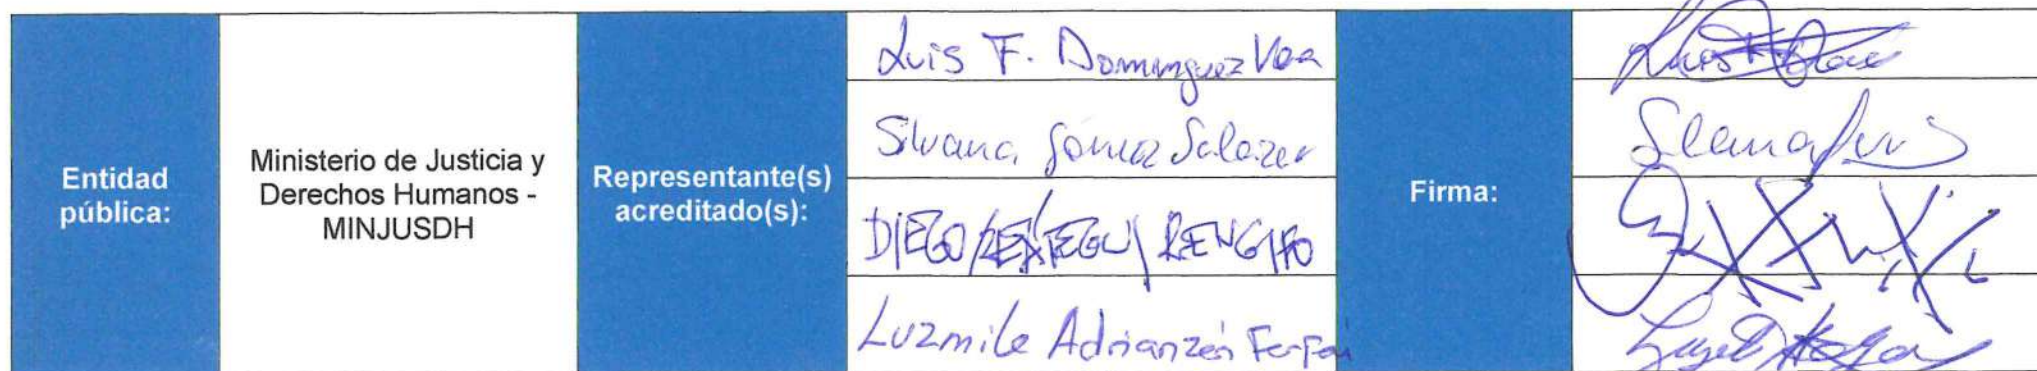 Entidad
pública:
Ministerio de Justicia y
Derechos Humanos -
MINJUSDH
Representante(s)
acreditado(s):
Luis F. Dominguez Vera
Silvana Gómez Salazar
DIEGO REÁTEGUI RENGIFO
Luzmila Adrianzén
Firma: